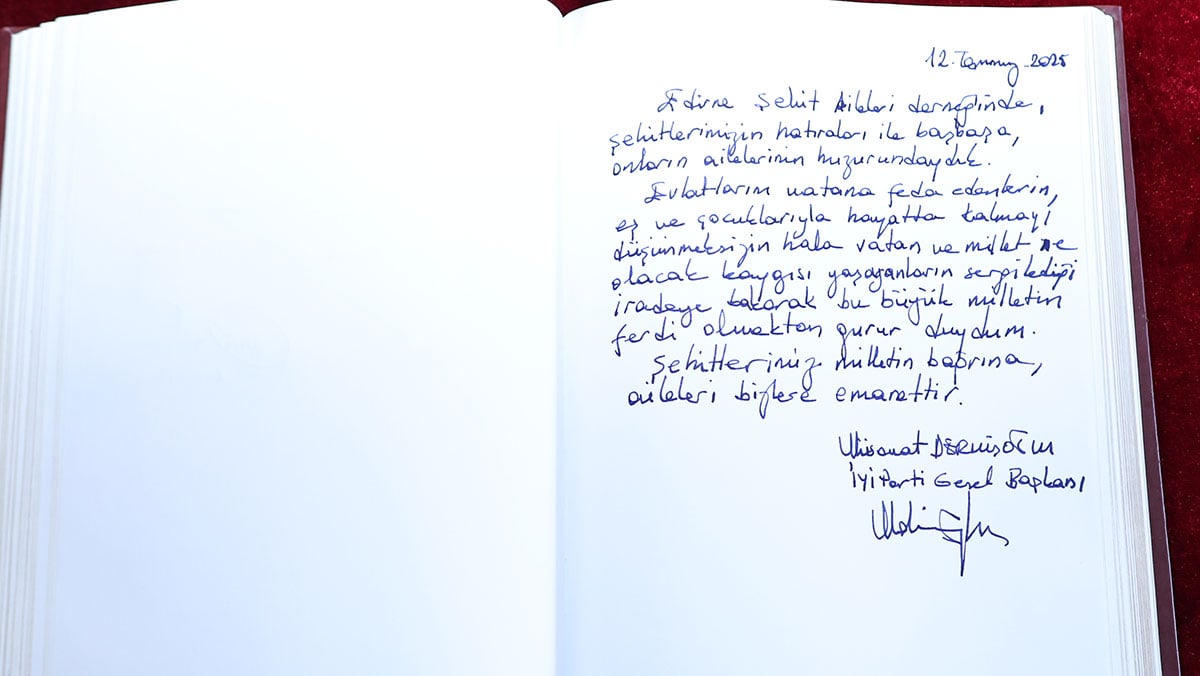 12.Temmuz.2025
Edirne Şehit Aileleri derneğinde,
şehitlerimizin hatıraları ile başbaşa,
onların ailelerinin huzurundaydık.
Evlatlarını vatana feda edenlerin,
eş ve çocuklarıyla hayatta kalmayı
düşünmeksizin hala vatan ve millet ne
olacak kaygısı yaşayanların sergilediği
iradeye bakarak bu büyük milletin
ferdi olmaktan gurur duydum.
Şehitlerimiz milletin bağrına,
aileleri bizlere emanettir.
Müsavat DERVİŞOĞLU
İyi Parti Genel Başkanı